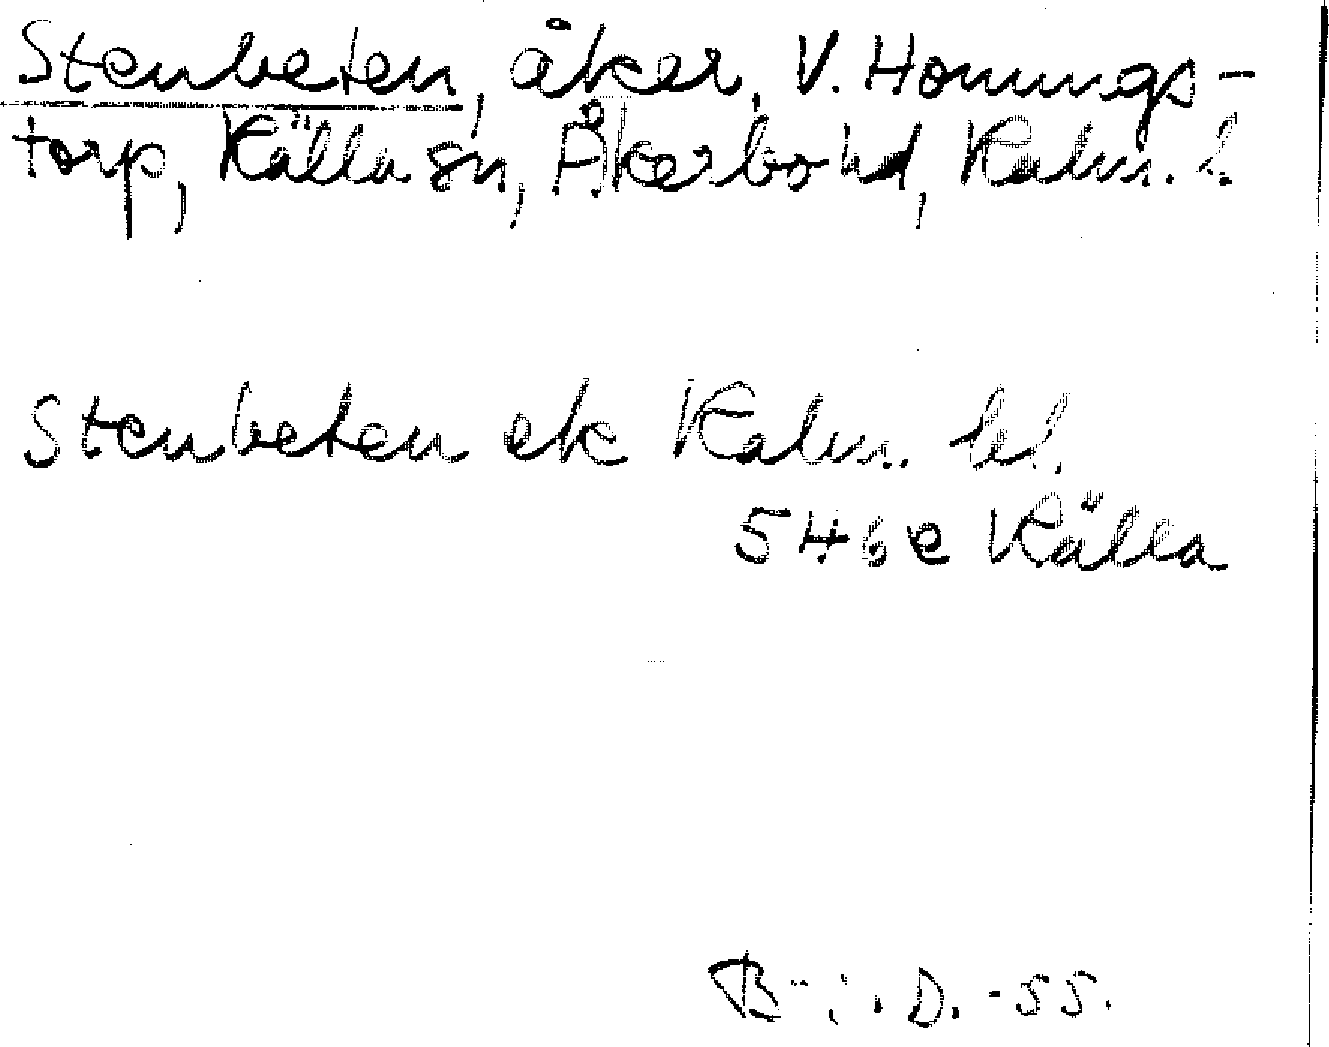 Stenbeten, åker, V. Hornings-
torp, Källa sn, Åkerbo hd, Kalm. l.
Stenbeten ek Kalm. bl.
546e Källa
D. -55.